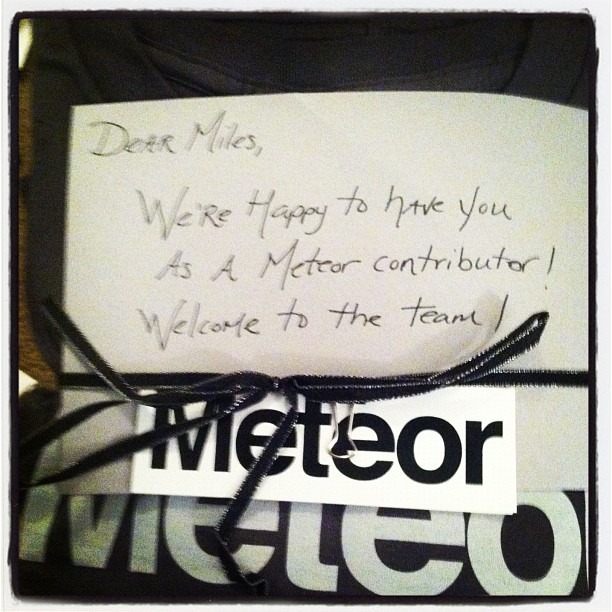 Dear Miles,
We're Happy to have you
As A Meteor contributor!
Welcome to the team!
Meteor
Meteo